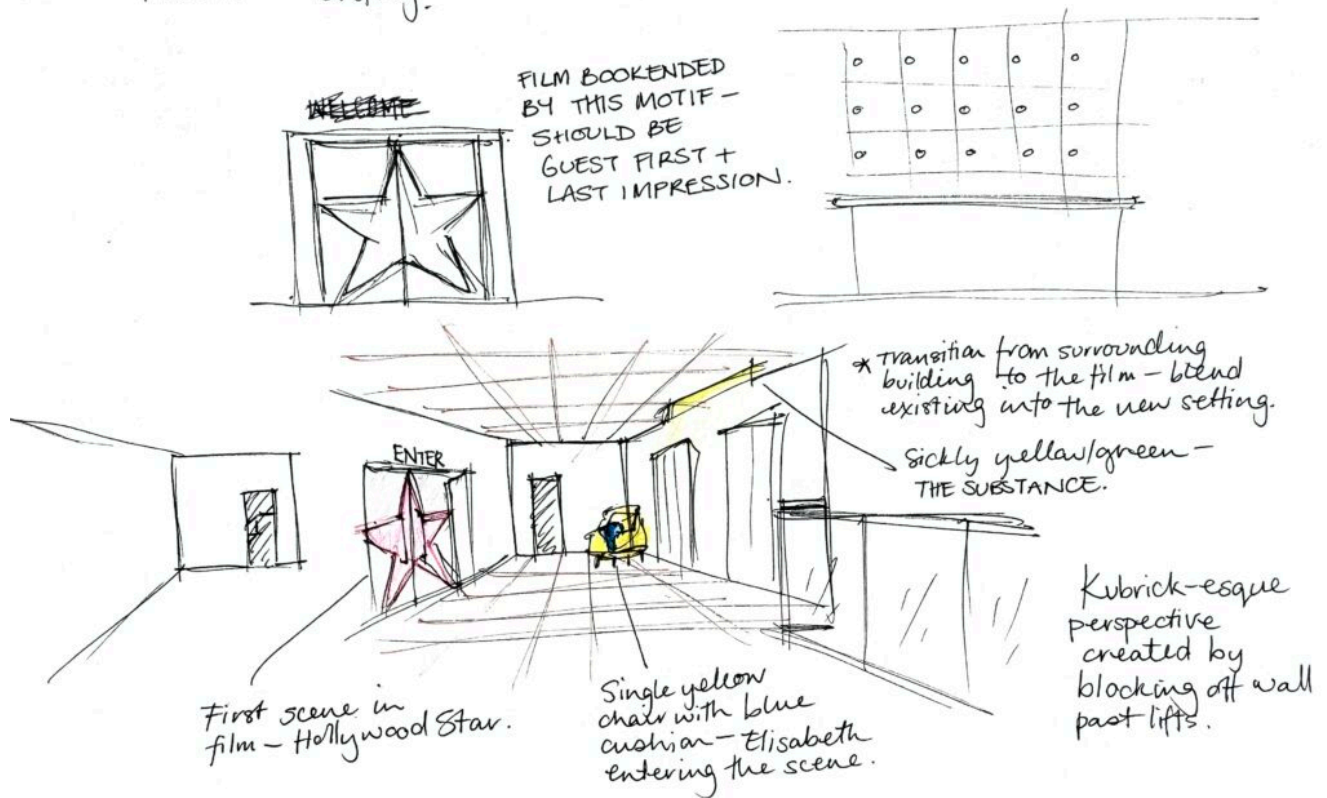 WELCOME
FILM BOOKENDED
BY THIS MOTIF –
SHOULD BE
GUEST FIRST +
LAST IMPRESSION.
* Transition from surrounding
building to the film – blend
existing into the new setting.
Sickly yellow/green –
THE SUBSTANCE.
ENTER
Kubrick-esque
perspective
created by
blocking off wall
past lifts.
First scene in
film – Hollywood Star.
Single yellow
chair with blue
cushion – Elisabeth
entering the scene.